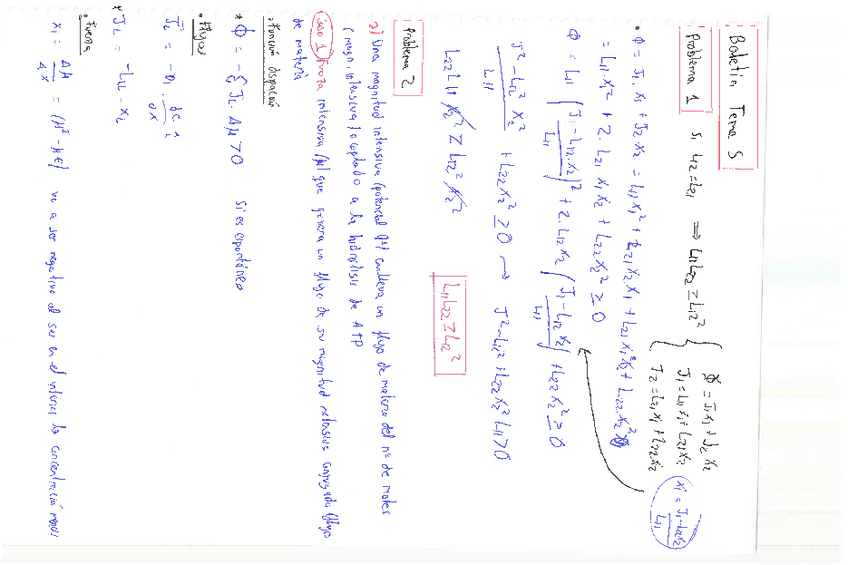 Boletín Tema 5
Problema 1 si L12=L21 ⟹ L11L22 ≥ L12²
Φ = J1x1 + J2x2
J1 = L11x1 + L21x2
J2 = L21x1 + L22x2
x1 = J1-L12x2 / L11
• Φ = J1.x1 + J2.x2 = L11x1² + L21x2x1 + L21x1x2 + L22x2²
= L11.x1² + 2.L21x1x2 + L22x2² ≥ 0
Φ = L11 (J1-L12.x2 / L11)² + 2.L12x2 (J1-L12x2 / L11) + L22x2² ≥ 0
J²-L12²x2² / L11 + L22x2² ≥ 0 → J²-L12² + L22x2² L11 > 0
L22L11x2² ≥ L12²x2²
L11L22 ≥ L12²
Problema 2
a) Una magnitud intensiva (potencial) conlleva un flujo de materia del nº de moles
(magn. intensiva) acoplado a la hidrólisis de ATP
caso 1 fuerza intensiva (μ) que genera un flujo de su magnitud extensiva conjugada (flujo
de materia
• Función disipación
* Φ = -Σ Ji.Δμ > 0 si es espontáneo
• Flujos
Ji = -Di . dci / dx
* Ji = -Lii . xi
• Fuerza
xi = Δμ / Δx = va a ser negativo al ser en el interior la concentración